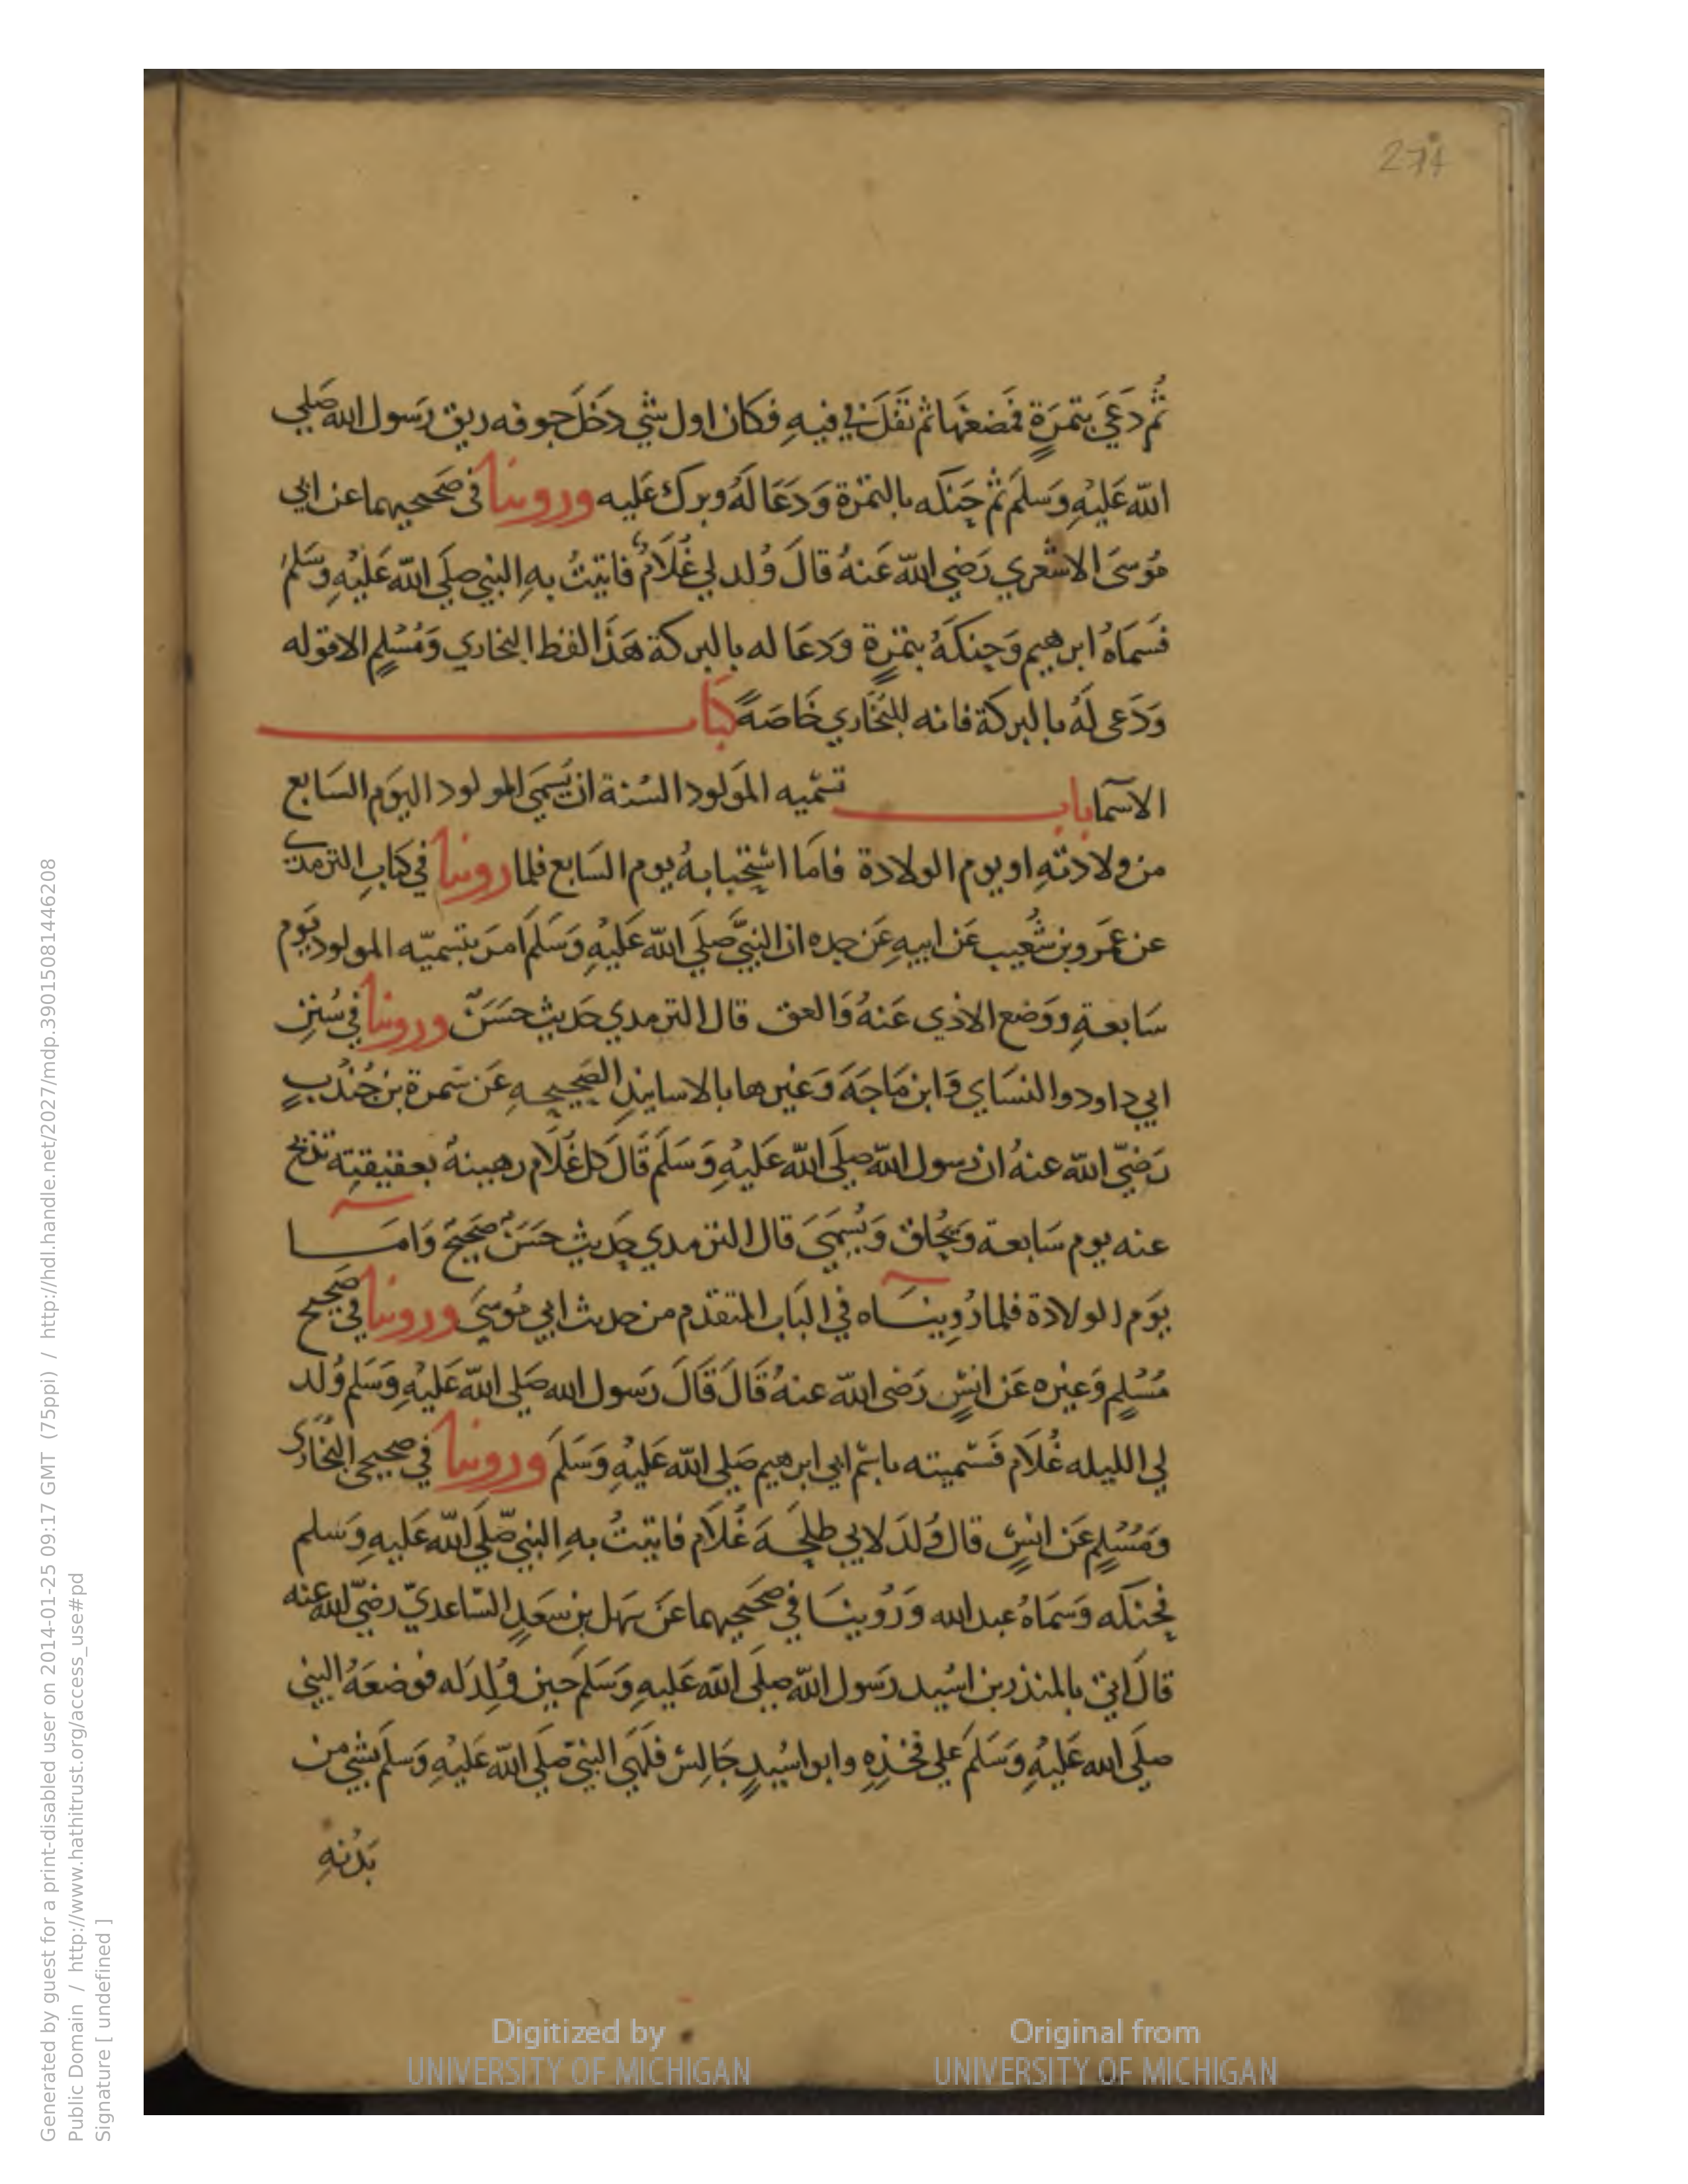 274
ثُم دَعَيَ بتمرَةٍ فمَضغهَا ثم تفَلَ في فيهِ فكان اول شي دَخَلَ جوفه ريق رَسول الله صَلي
الله عَليْهِ وَسَلمَ ثم حَنكه بالتمْرة وَدَعَا لَهُ وبرك عَليه وروينا فى صَحيحيهما عن ابي
مُوسَى الاشعري رَضي الله عَنهُ قالَ وُلد لي غُلَامٌ فاتيتُ بهِ النبي صلَي الله عَليْهِ وَسَلمُ
فَسَماهُ ابرهيم وَحنكَهُ بتمْرةٍ وَدَعَا له بالبركة هَذَا لفظ البخاري وَمُسْلمٍ الا قوله
وَدَعى لَهُ بالبركة فانه للبُخَاري خَاصَةً كتاب
الاسمآ باب تسميه المَولود السُنة ان يُسَمَي المولود اليَوم السَابع
من ولادتهِ او يوم الولادة فامَا استحبابهُ يوم السَابع فلما روينا في كتابِ الترمدي
عن عَمَرو بن شُعيب عَن ابيهِ عَن جده ان النبيَّ صلَي الله عَليْهِ وَسَلمَ امرَ بتسميّه المولود يَوم
سَابعةِ ووَضع الاذي عَنهُ وَالعق قال الترمدي حَديث حسَنٌ وروينا في سُننِ
ابي داود والنسَاي وَابن مَاجَةَ وَغيرها بالاسانيدِ الصَحيحهِ عَن سَمرة بن جُندُبٍ
رَضيّ الله عنهُ ان رسول الله صلَي الله عَليْهِ وَسَلمَ قالَ كل غُلَام رهينهُ بعقيقتِه تذبح
عنه يوم سَابعة وَيحُلق وَيُسمَيَ قال الترمدي حَديث حسَنٌ صَحيحٌ وَامَا
يَوم الولادة فلما رُوِينَاه في البَاب المتقدم من حديث ابي مُوسَيَ وروينا في صَحيح
مُسْلمٍ وَغيره عَن انسٍ رَضى الله عنهُ قَالَ قَالَ رَسول الله صَلي الله عَليْهِ وَسَلم وُلد
لي الليله غُلَام فَسَميته باسْم ابي ابرهيم صَلي الله عَليْهِ وَسَلمَ وروينا في صحيحى البُخاري
وَمُسْلمٍ عَن انسٍ قال وُلدَ لابي طلحَةَ غُلَام فاتيتُ بهِ النبيّ صّلَي الله عَليهِ وَسلم
فحنكه وَسَماهُ عبد الله وَرُوينَا في صَحيحيهما عَن سَهل بن سَعَدٍ السّاعديّ رضيّ الله عنه
قالَ اتيَ بالمنذر بن اسُيد رَسول الله صلَي الله عَليهِ وَسَلمَ حين وُلِدَ له فوضعَهُ النبي
صلَي الله عَليْهِ وَسَلمَ علي فخذِهِ وابو اسُيدٍ جَالسٌ فلَهَي النبيّ صَلَي الله عَليْهِ وَسلم بشي من
بَدُنهِ
Generated by guest for a print-disabled user on 2014-01-25 09:17 GMT (75ppi) / http://hdl.handle.net/2027/mdp.39015081446208
Public Domain / http://www.hathitrust.org/access_use#pd
Signature [ undefined ]
Digitized by
UNIVERSITY OF MICHIGAN
Original from
UNIVERSITY OF MICHIGAN